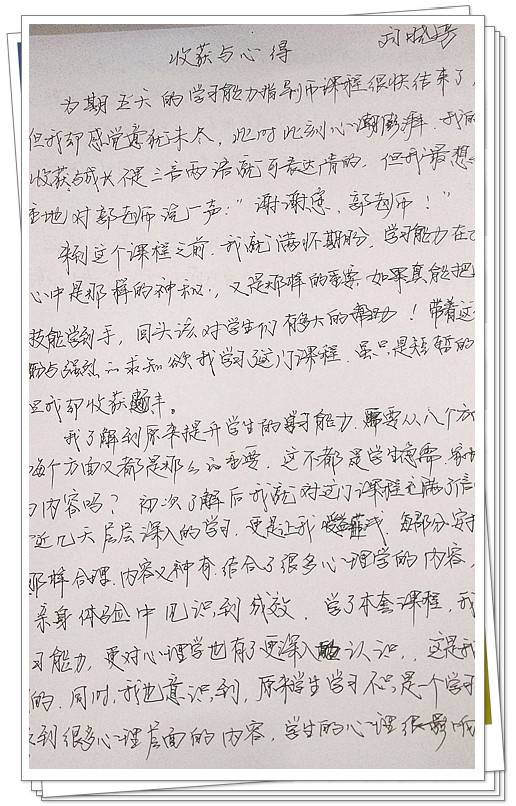 收获与心得
为期五天的学习能力指导师课程很快结束了,
但我却感觉意犹未尽,此时此刻心潮澎湃.我的
收获与成长不是三言两语就可表达清的,但我最想
地对郭老师说一声:“谢谢您,郭老师!”
来到这个课程之前,我就满怀期盼,学习能力在
心中是那样的神秘,又是那样的重要.如果真能把
技能学到手,回头该对学生们有多大的帮助!带着这
与强烈的求知欲我学习这门课程.虽只是短暂的
但我却收获颇丰。
我了解到原来提升学生的学习能力,需要从八个方
每个方面又都是那么的重要,这不都是学生急需、
内容吗?初次了解后我就对这门课程充满了信
近几天层层深入的学习,更是让我受益匪浅,每部分安排
那样合理,内容又神奇,结合了很多心理学的内容,
亲身体验中见识到成效.学了本套课程,我
习能力,更对心理学也有了更深入的认识,这是我
的.同时,我也意识到,原来学生学习不只是一个学习
到很多心理层面的内容,学生的心理很影响